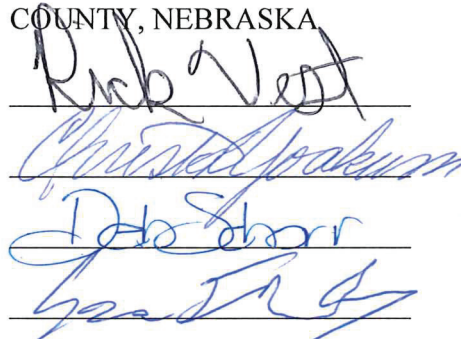 COUNTY, NEBRASKA
Rick Vest
Christa Yoakum
Deb Schorr